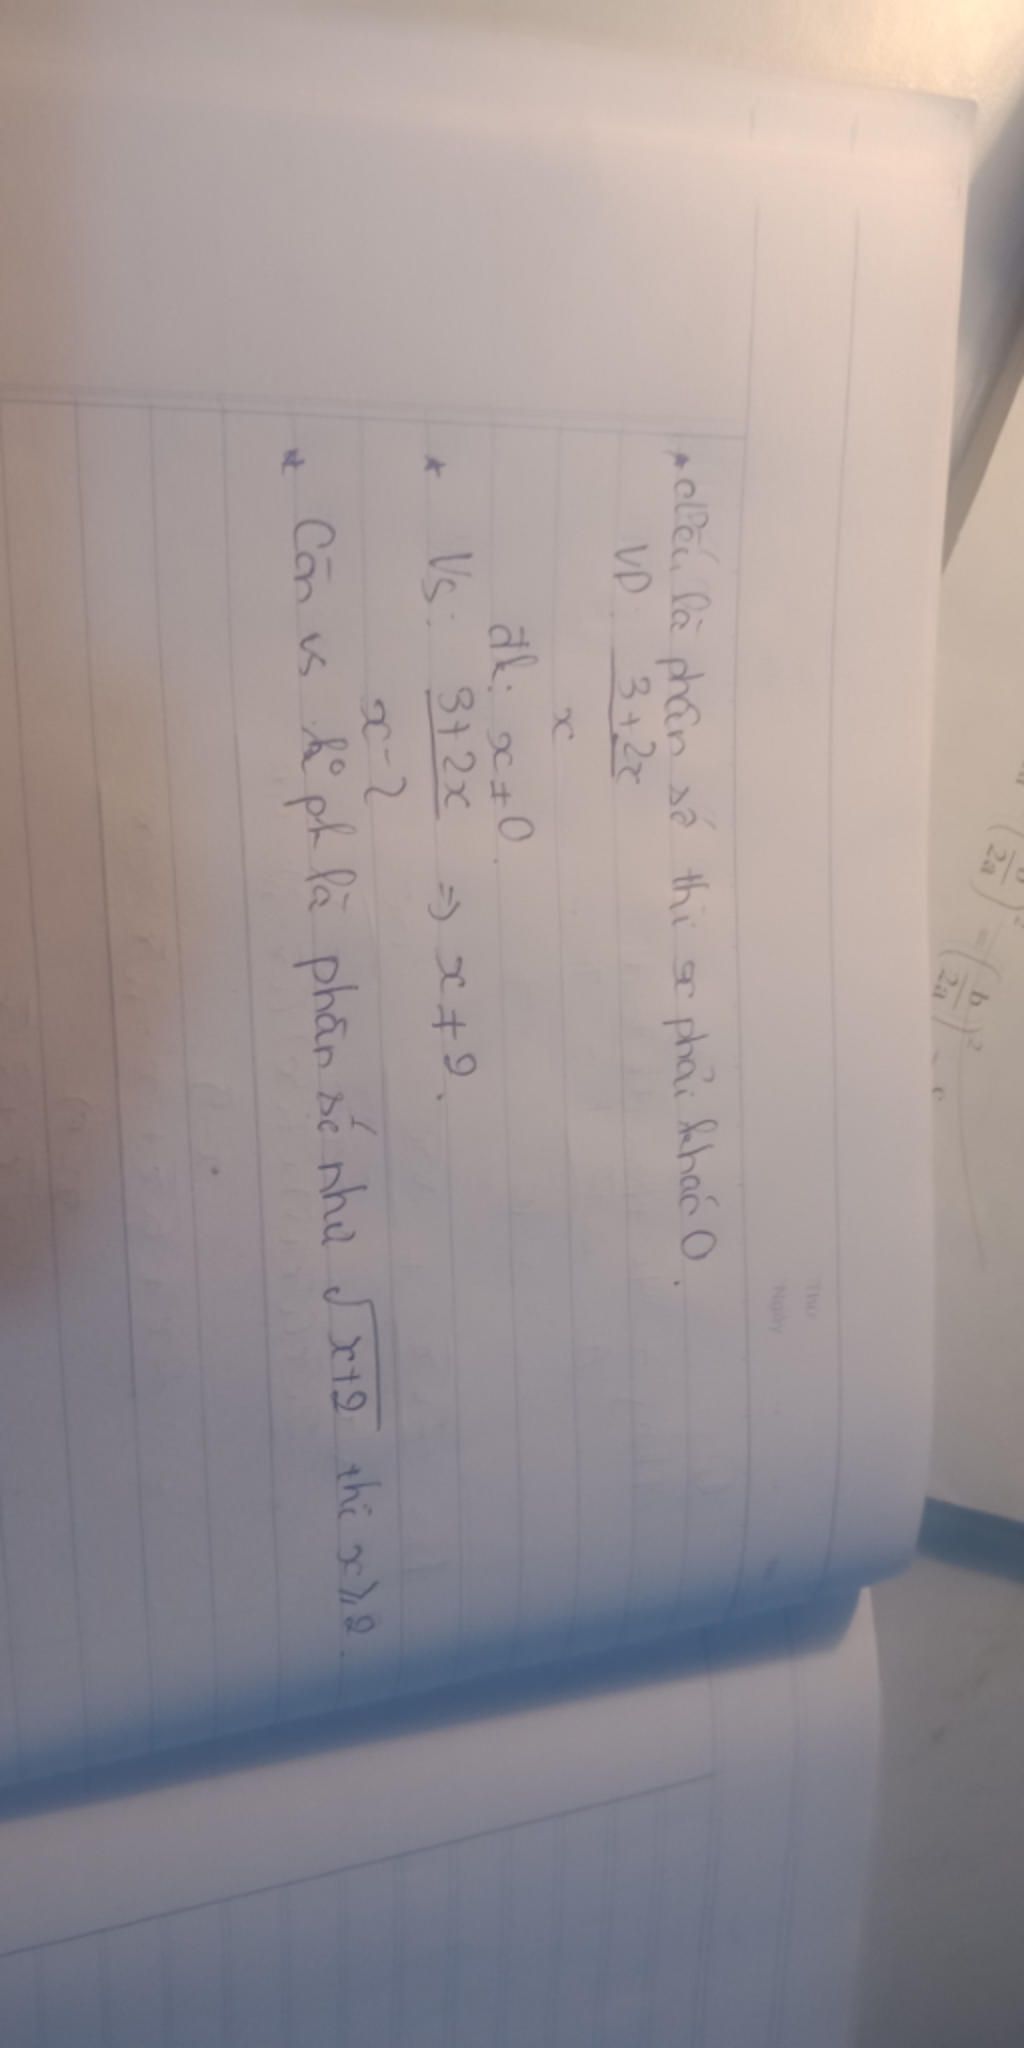 * Nếu là phân số thì x phải khác 0.
VD: 3+2x
x
đk: x ≠ 0.
* Vs: 3+2x => x ≠ 2.
x-2
* Còn vs ko ph là phân số như √x+2 thì x ≥ 2.
Thứ
Ngày
(b/2a)² = (b/2a)² - c